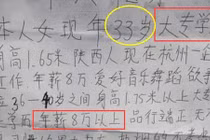 本人女现年33岁大专学
身高1.65米陕西人现在杭州一企
工作年薪8万爱好音乐舞蹈
36-40岁之间身高1.75米以上大专
年薪8万以上品行端正无